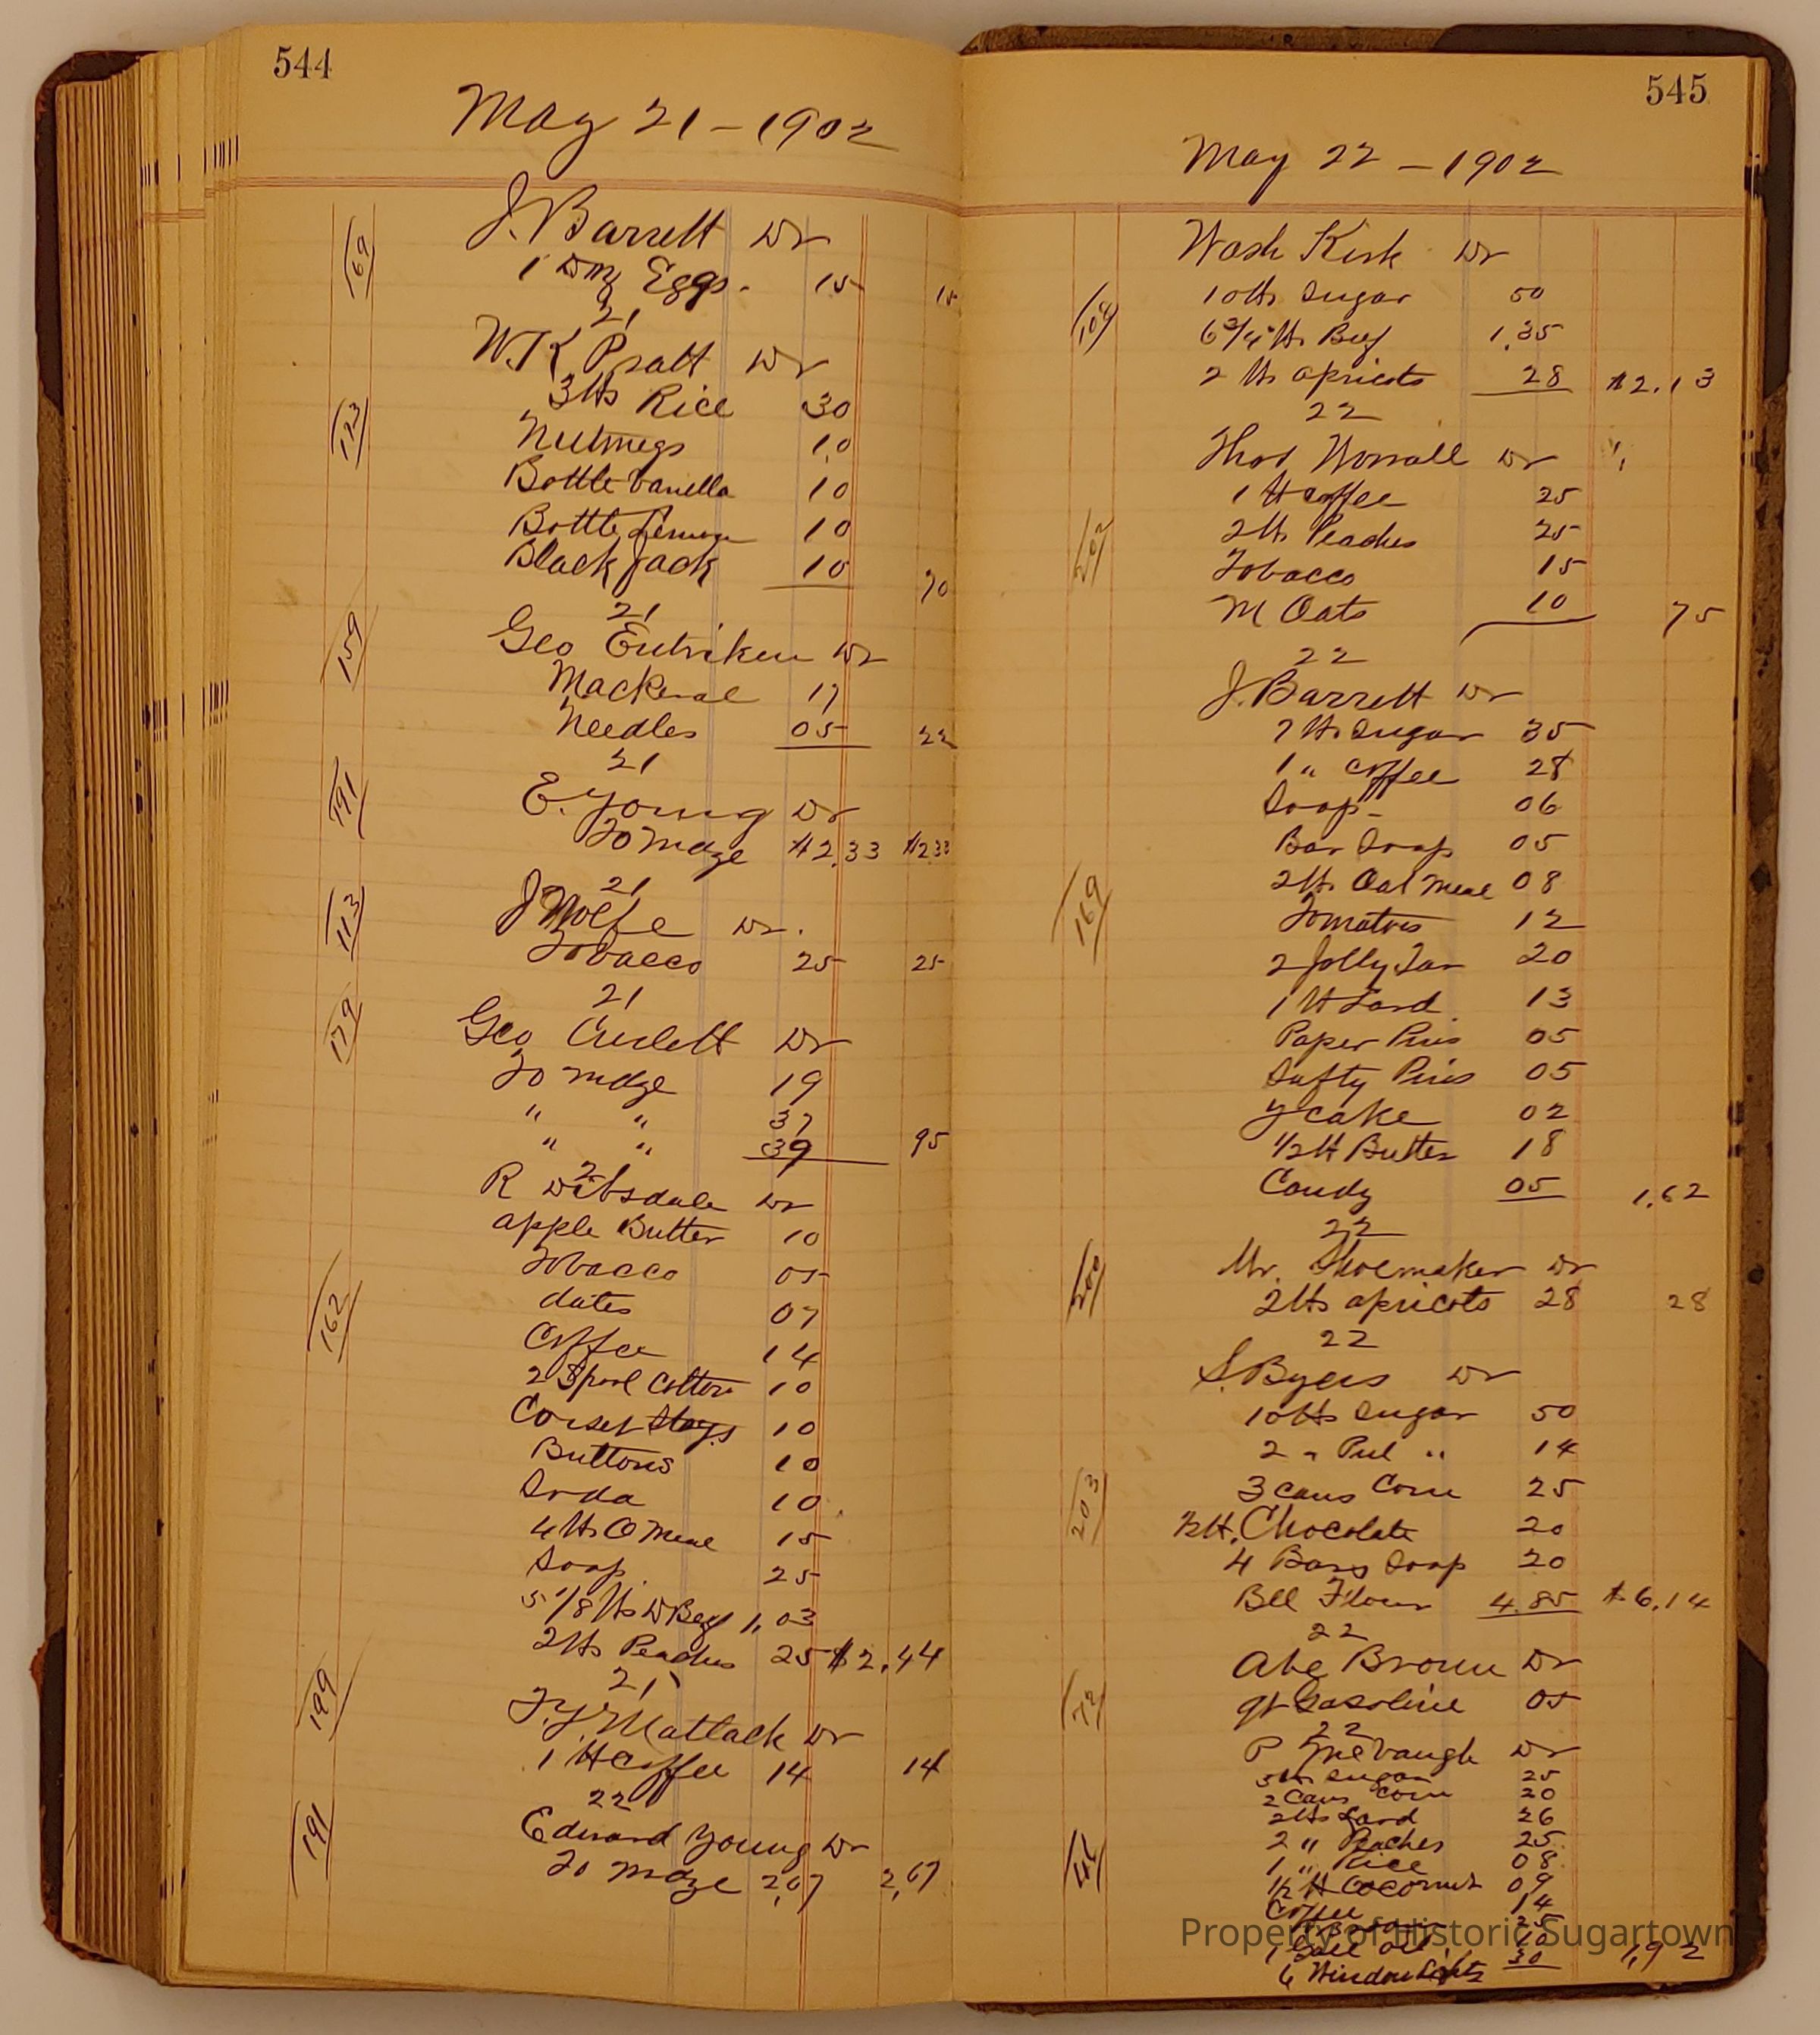 544
May 21 - 1902
J. Barrett Dr
169
1 Doz Eggs. 15 15
21
W. K Pratt Dr
3 lbs Rice 30
123
Nutmegs 10
Bottle Vanilla 10
Bottle Lemon 10
Black Jack 10 70
21
159
Geo Entriken Dr
Mackeral 17
Needles 05 22
21
191
E. Young Dr
To mdze $2.33 $2.33
21
113
J Wolfe Dr.
Tobacco 25 25
21
179
Geo Dr
To mdze 19
" " 37
" " 39 95
21
R Dr
apple Butter 10
Tobacco 05
dates 07
162
Coffee 14
2 Spool Cotton 10
Corset Stays 10
Buttons 10
Soda 10
4 lbs O Meal 15
Soap. 25
5 1/8 lbs D Beef 1.03
2 lbs Peaches 25 $2.44
21
199
T. Y Matlack Dr
1 lb coffee 14 14
22
191
Edward Young Dr
To mdze 2,67 2,67
545
May 22 - 1902
Wash Kirk Dr
10 lbs Sugar 50
108
6 3/4 lbs Beef 1.35
2 lbs apricots 28 $2.13
22
Thos Worrall Dr
1 lb coffee 25
2 lbs Peaches 25
Tobacco 15
M Oats 10 75
22
J. Barrett Dr
7 lbs Sugar 35
1 " Coffee 28
Soap - 06
Bar Soap 05
2 lbs Oat Meal 08
169
Tomatoes 12
2 Jolly Tar 20
1 lb Lard. 13
Paper Pins 05
Safty Pins 05
Y cake 02
1/2 lb Butter 18
Candy 05 1,62
22
200
Mr. Shoemaker Dr
2 lbs apricots 28 28
22
S. Byers Dr
10 lbs Sugar 50
2 " Pul " 14
203
3 cans Corn 25
1/2 lb. Chocolate 20
4 Bars Soap 20
Bbl Flour 4.85 $6.14
22
Abe Brown Dr
72
qt Gasoline 05
22
P Dr
5 lbs Sugar 25
2 Cans Corn 20
2 lbs Lard 26
2 " Peaches 25
1 " Rice 08
1/2 lb Cocornut 09
Coffee 14
25
1 Gall Oil 10
6 Window Lights 30 1,92
Property of Historic Sugartown